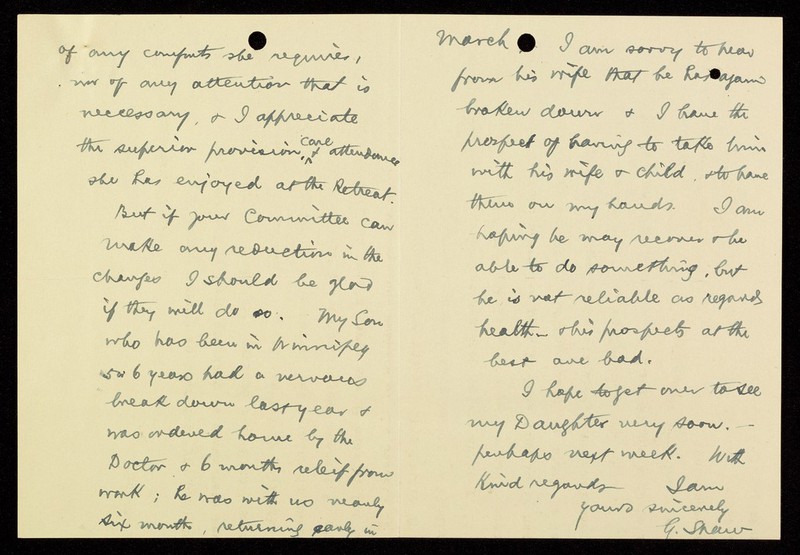 of any comforts she requires,
nor of any attention that is
neccessary, & I appreciate
the superior provision, care & attendance
she has enjoyed at the Retreat.
But if your Committee can
make any reduction in the
charges I should be glad
if they will do so. My Son
who has been in Winnipeg
5 or 6 years had a nervous
break down last year &
was ordered home by the
Doctor & 6 months releif from
work; he was with us nearly
six months, returning early in
March. I am sorry to hear
from his wife that he has again
broken down & I have the
prospect of having to take him
with his wife & child, & to have
them on my hands. I am
hoping he may recover & be
able to do something, but
he is not reliable as regards
health - & his prospects at the
best are bad.
I hope to get over to see
my Daughter very soon. -
perhaps next week. With
Kind regards I am
yours sincerely
G. Shaw